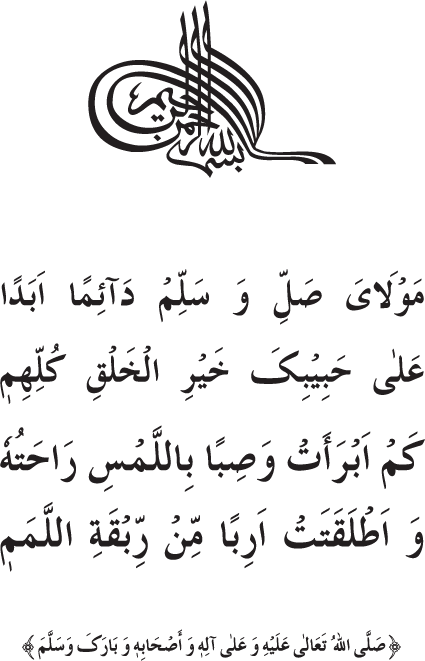 بسم الله الرحمن الرحيم
مَوْلَایَ صَلِّ وَ سَلِّمْ دَآئِمًا اَبَدًا
عَلٰی حَبِیْبِکَ خَیْرِ الْخَلْقِ کُلِّهِمٖ
کَمْ اَبْرَأَتْ وَصِبًا بِاللَّمْسِ رَاحَتُهٗ
وَ اَطْلَقَتَتْ اَرِبًا مِّنْ رِّبْقَةِ اللَّمَمٖ
﴿صَلَّی اللهُ تَعَالٰی عَلَیْهِ وَ عَلٰی آلِهٖ وَ أَصْحَابِهٖ وَ بَارَکَ وَسَلَّمَ﴾